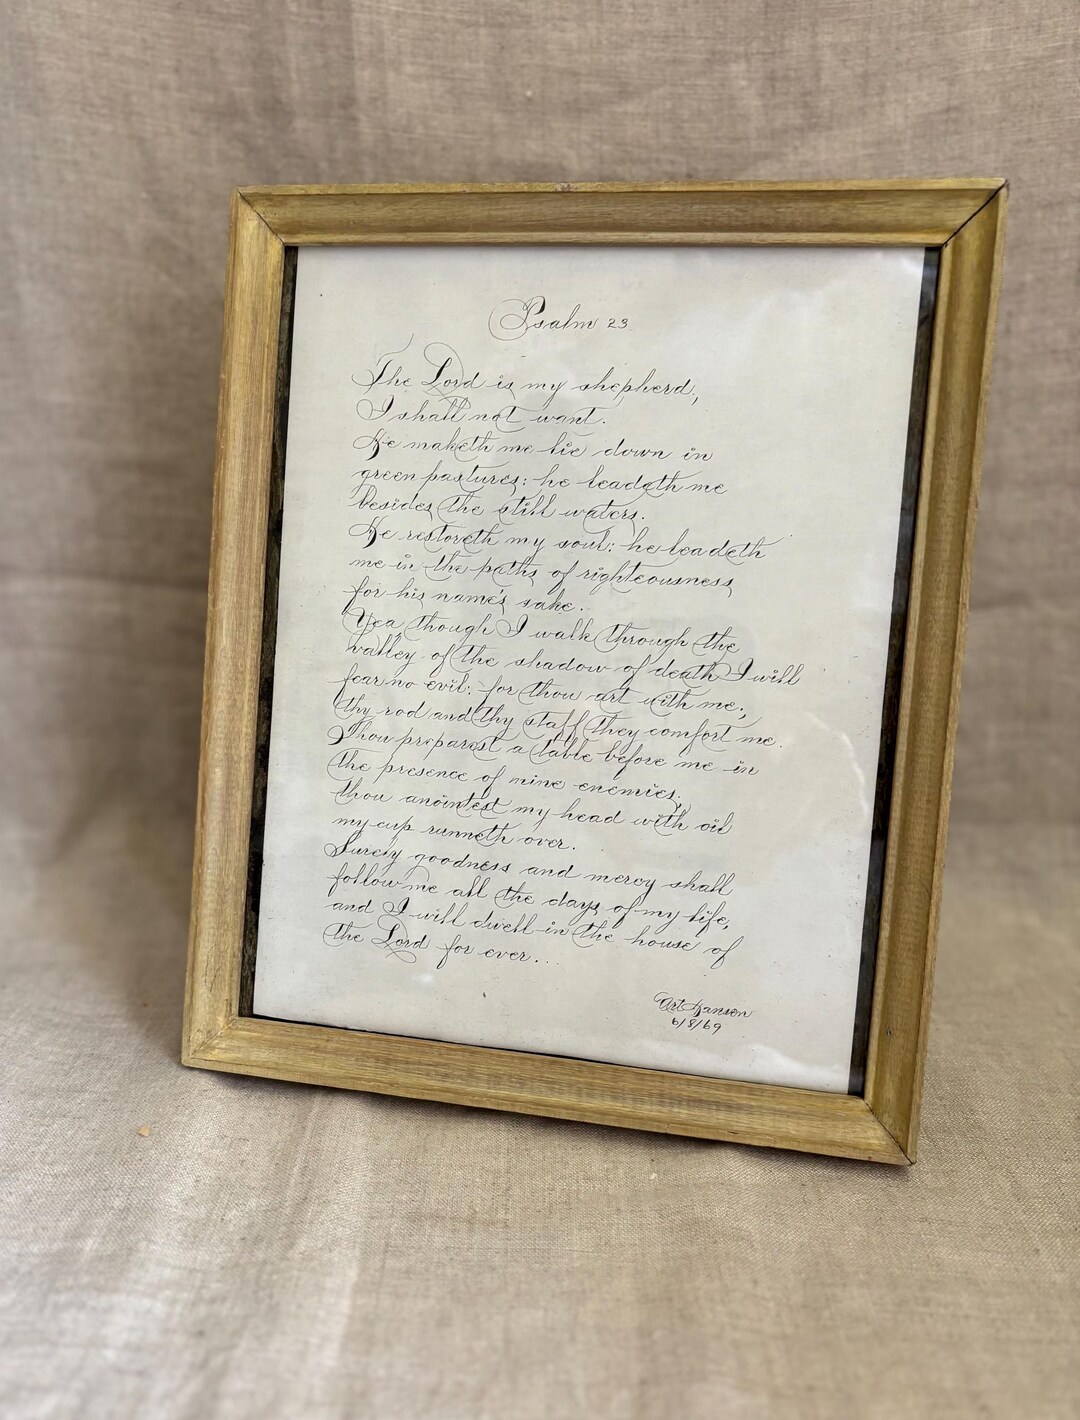 Psalm 23
The Lord is my shepherd;
I shall not want.
He maketh me lie down in
green pastures: he leadeth me
besides the still waters.
He restoreth my soul: he leadeth
me in the paths of righteousness
for his name's sake.
Yea, though I walk through the
valley of the shadow of death I will
fear no evil: for thou art with me;
thy rod and thy staff they comfort me.
Thou preparest a table before me in
the presence of mine enemies;
thou anointest my head with oil
my cup runneth over.
Surely goodness and mercy shall
follow me all the days of my life,
and I will dwell in the house of
the Lord for ever....
Art Hanson
6/8/69